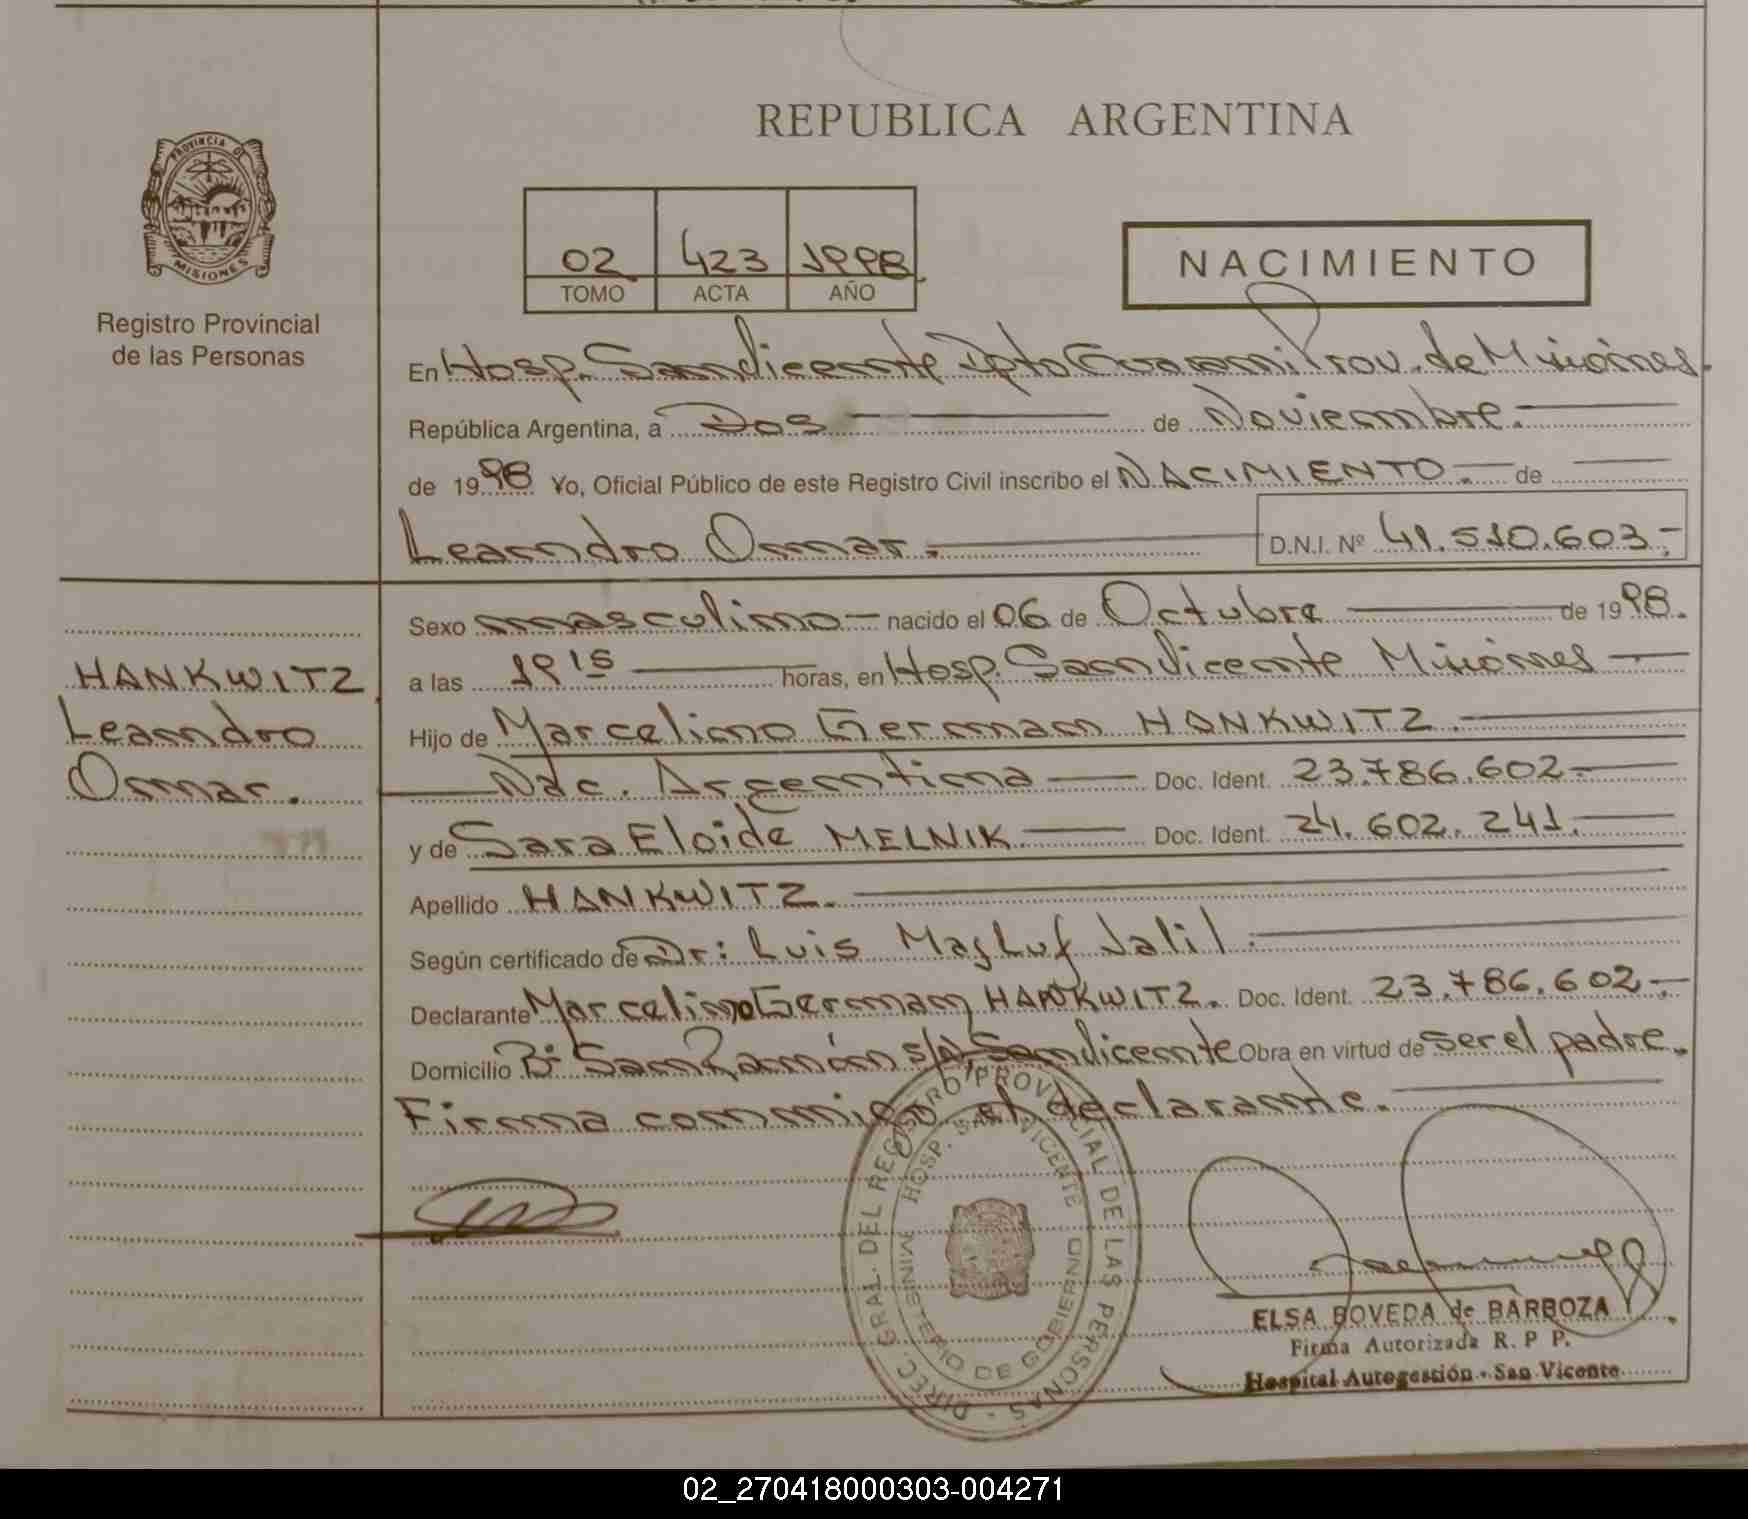 REPUBLICA ARGENTINA
PROVINCIA DE
MISIONES
Registro Provincial
de las Personas
02 423 1998
TOMO ACTA AÑO
NACIMIENTO
En Hosp. San Vicente Dpto Guarani Prov. de Misiones.
República Argentina, a Dos de Noviembre.
de 1998 Yo, Oficial Público de este Registro Civil inscribo el NACIMIENTO. de
Leandro Omar. D.N.I. Nº 41.510.603.-
HANKWITZ
Leandro
Omar.
Sexo masculino nacido el 06 de Octubre de 1998.
a las 19 15 horas, en Hosp. San Vicente Misiones
Hijo de Marcelino German HANKWITZ.
Nac. Argentina Doc. Ident. 23.786.602.-
y de Sara Eloide MELNIK Doc. Ident. 24.602.241.
Apellido HANKWITZ.
Según certificado de Dr: Luis Masluf Jalil.
Declarante Marcelino German HANKWITZ. Doc. Ident. 23.786.602.-
Domicilio Bº San Ramón s/n, San Vicente Obra en virtud de ser el padre.
Firma conmigo el declarante.
DIREC. GRAL. DEL REGISTRO PROVINCIAL DE LAS PERSONAS -
HOSP. SAN VICENTE
MINISTERIO DE GOBIERNO
ELSA BOVEDA de BARBOZA
Firma Autorizada R. P P.
Hospital Autogestión - San Vicente
02_270418000303-004271